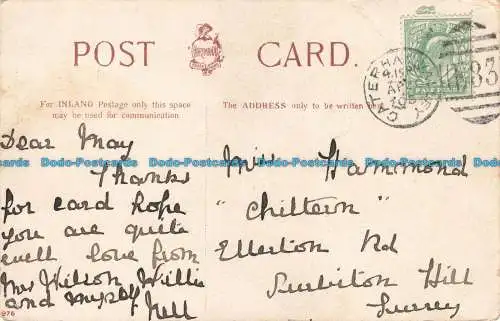 POST CARD.
For INLAND Postage only this space
may be used for communication.
The ADDRESS only to be written
CATERHAM VALLEY
Dear May
Thanks
for card hope
you are quite
well love from
Mrs Wilson Willie
and myself
Nell
976
Miss Hammond
"Chiltern"
Ellerton Rd
Surbiton Hill
Surrey
Dodo-Postcards Dodo-Postcards Dodo-Postcards Dodo-Postcards